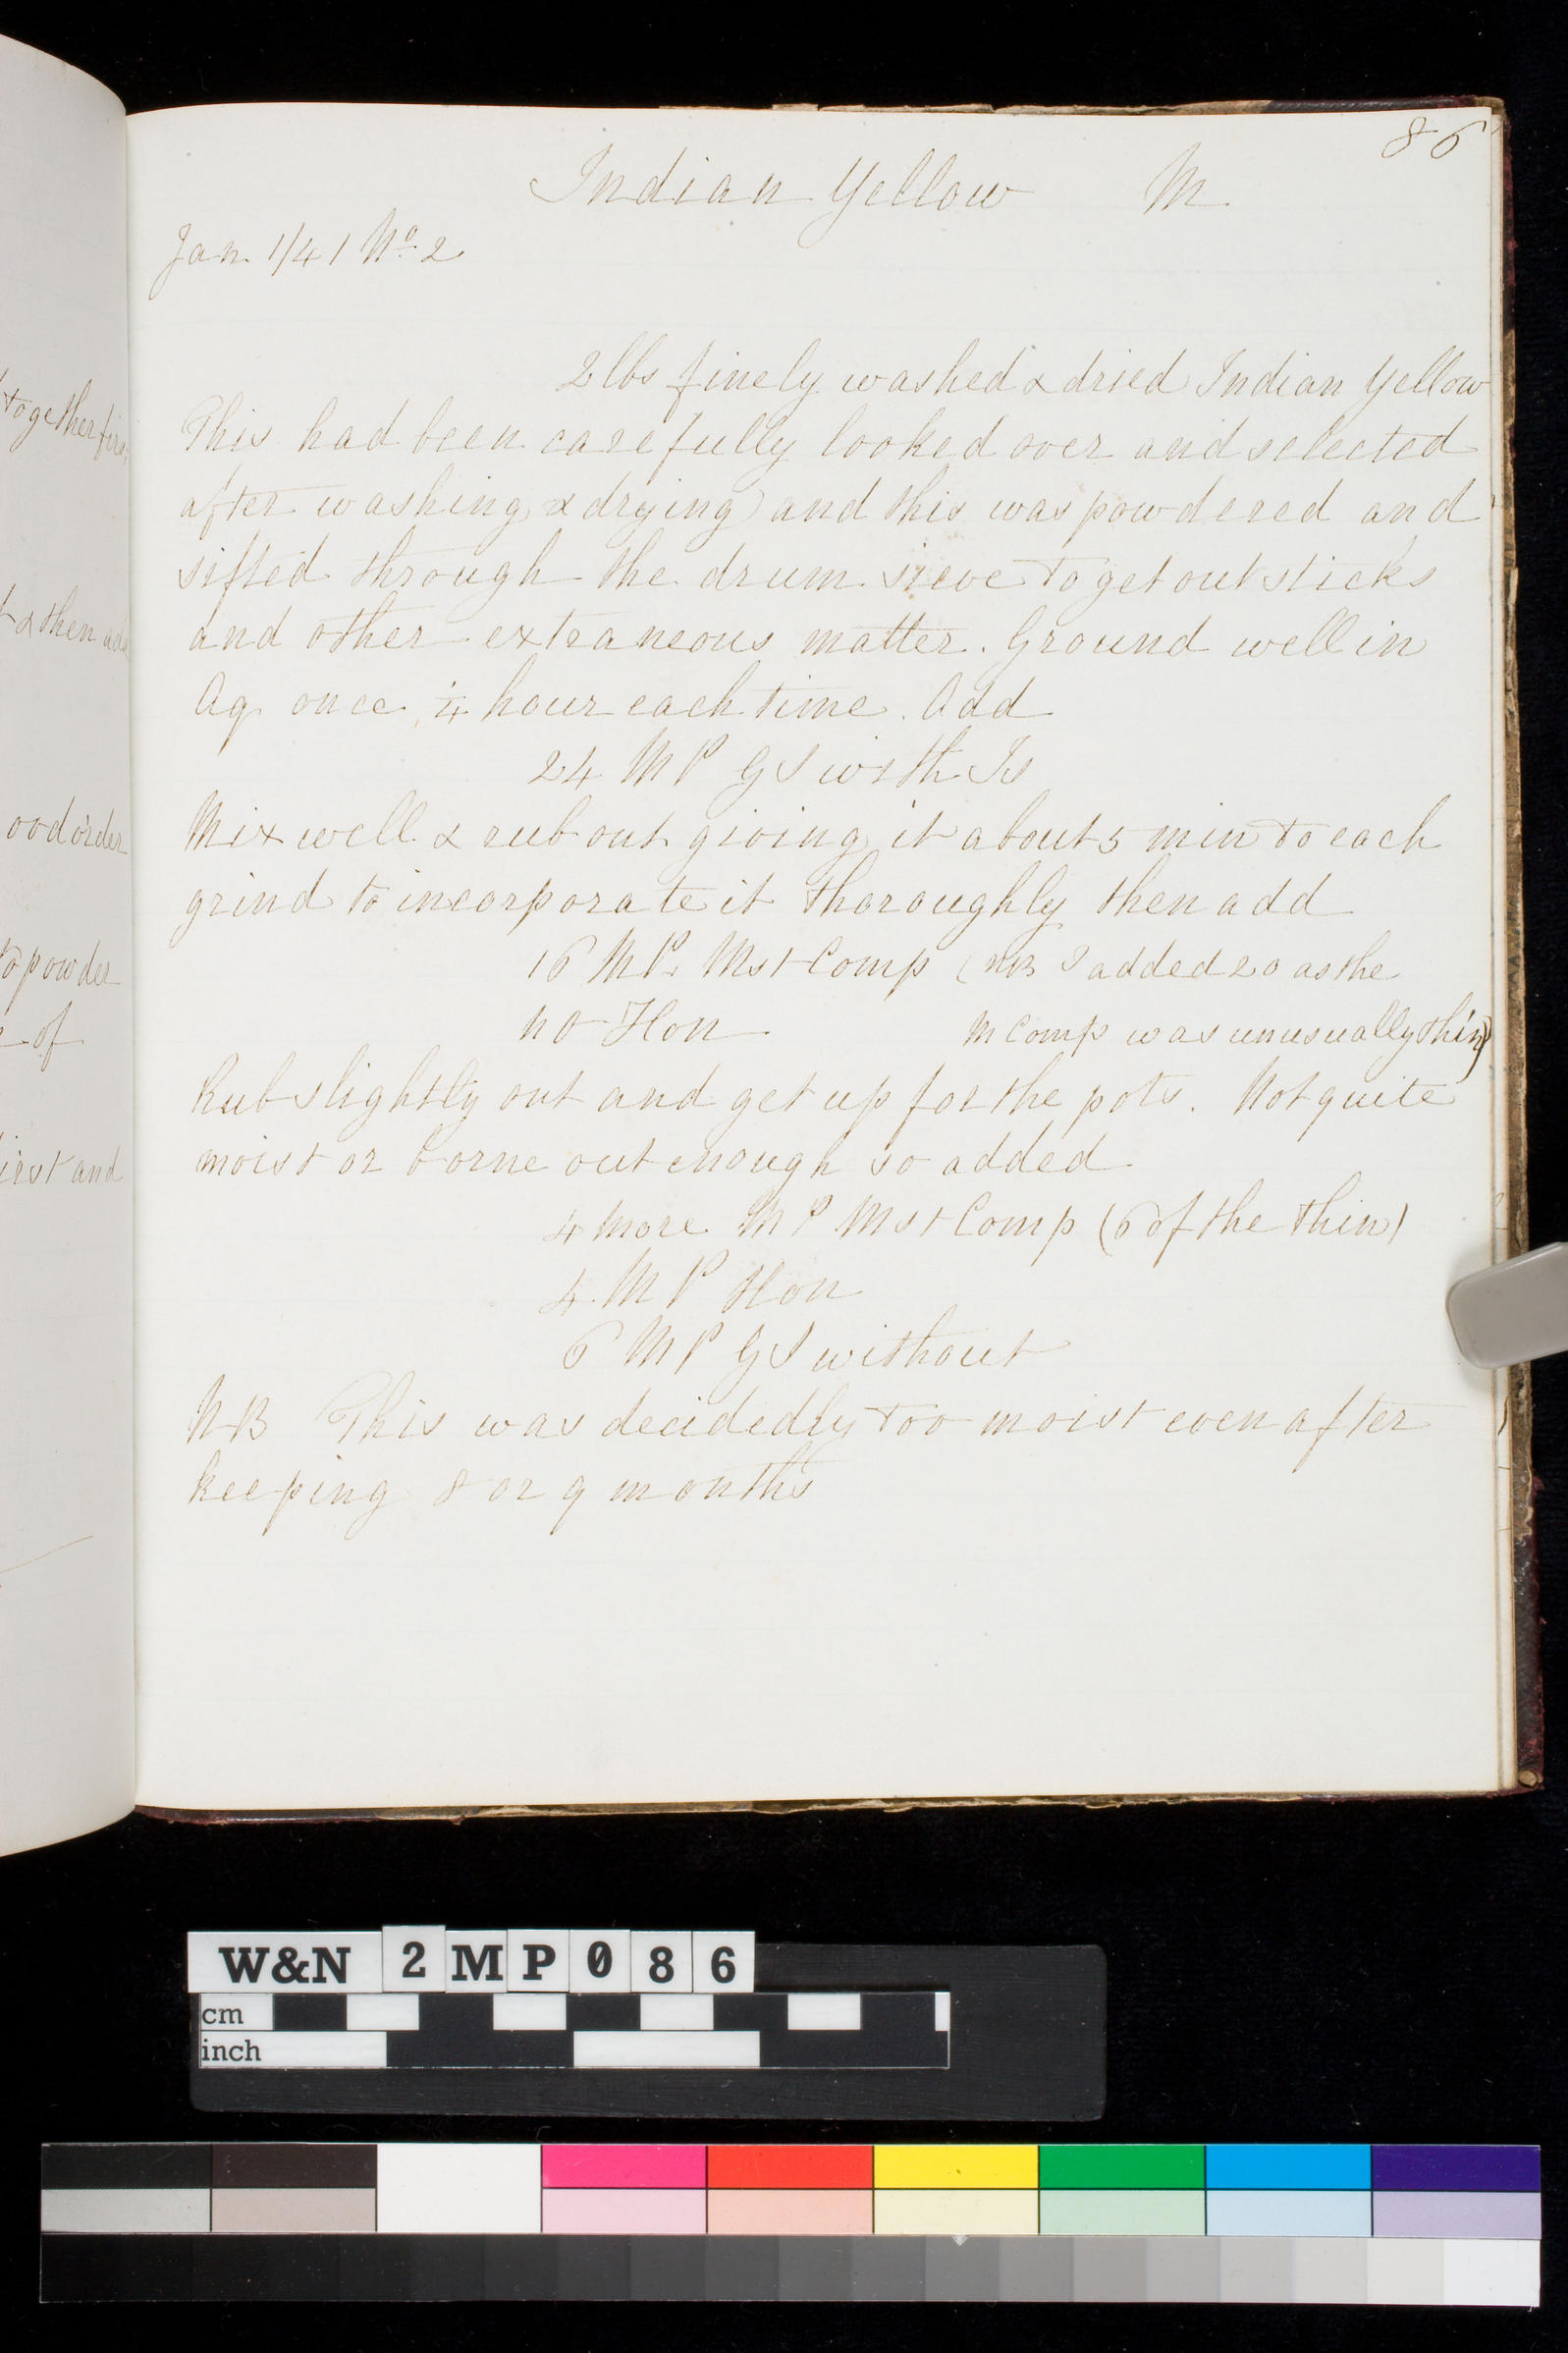 86
Indian Yellow M
Jan 1/41 No. 2
2 lbs finely washed & dried Indian Yellow
This had been carefully looked over and selected
after washing & drying) and this was powdered and
sifted through the drum sieve to get out sticks
and other extraneous matter. Ground well in
Aq once ¼ hour each time. Add
24 MP GS with Is
Mix well & rub out giving it about 5 min to each
grind to incorporate it thoroughly then add
16 MP. Mst Comp (NB I added 20 as the
no Hon M Comp was unusually thin)
Rub slightly out and get up for the pots. Not quite
moist or borne out enough so added
4 more MP Mst Comp (6 of the thin)
4 MP Hon
6 MP GS without
NB This was decidedly too moist even after
keeping 8 or 9 months
together firs
& then add
ood order
to powder
of
irst and
W&N 2MP086
cm
inch